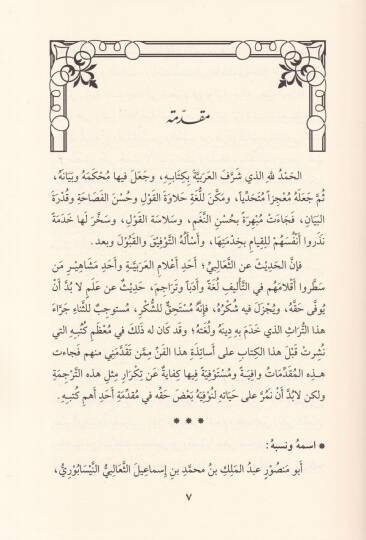 مقدّمة
الحَمْدُ للهِ الذي شَرَّفَ العَرَبيَّةَ بِكِتابِـهِ، وجَعَلَ فيها مُحْكَمَهُ وبَيَانَهُ،
ثُمَّ جَعَلَهُ مُعْجِزاً مُتَحَدِّياً، ومَكَّنَ لِلُّغَةِ حَلاوَةَ القَوْلِ وحُسْنَ الفَصَاحَةِ وقُدْرَةَ
البَيَانِ، فَجَاءَتْ مُبْهِرَةً بِحُسْنِ النَّغَمِ، وسَلاسَةِ القَوْلِ، وسَخَّرَ لَها خَدَمَةً
نَذَروا أَنْفُسَهُمْ لِلقِيامِ بِخِدْمَتِها، وأَسْأَلُهُ التَّوْفِيقَ والقَبُوْلَ وبعد.
فإنَّ الحَدِيْثَ عن الثَّعالِبيِّ؛ أَحَدِ أَعْلامِ العَرَبِيَّـةِ وأَحَدِ مَشَاهِيْـرِ مَن
سَطَّروا أَقْلامَهُم في التَّأليفِ لُغَةً وأَدَباً وتَراجِمَ، حَدِيْثٌ عن عَلَمٍ لا بُدَّ أَنْ
يُوفَّى حَقَّهُ، ويُجْزَلَ فيه شُكْرُهُ، فإنَّهُ مُسْتَحِقٌّ للشُّكْرِ، مُستوجِبٌ للثَّناءِ جَرَّاءَ
هذا التُّراثِ الذي خَدَمَ بِهِ دِينَهُ ولُغَتَهُ؛ وقد كان له ذلك في مُعْظَمِ كُتُبِـهِ التي
نُشِرَتْ قَبْلَ هذا الكِتابِ على أَساتِذَةِ هذا الفَنِّ مِمَّن تَقَدَّمَني منهم فَجاءت
هـذه المُقَدِّماتُ وافِيَـةً ومُسْتَوْفِيَةً فيها كِفايةٌ عَن تِكْرَارِ مِثلِ هذه التَّرْجَمَةِ
ولكن لابُدَّ أَنْ نَمُرَّ على حَيَاتهِ لنُوْفِيَهُ بَعْضَ حَقِّهِ في مُقدِّمَةِ أَحَدِ أهمِ كُتُبِـهِ.
* * *
* اسمه ونسبهُ:
أَبو مَنصُوْرٍ عبدُ المَلِكِ بنُ محمَّدِ بنِ إسماعِيلَ الثَّعالِبيُّ النَّيْسَابُوْرِيُّ،
٧